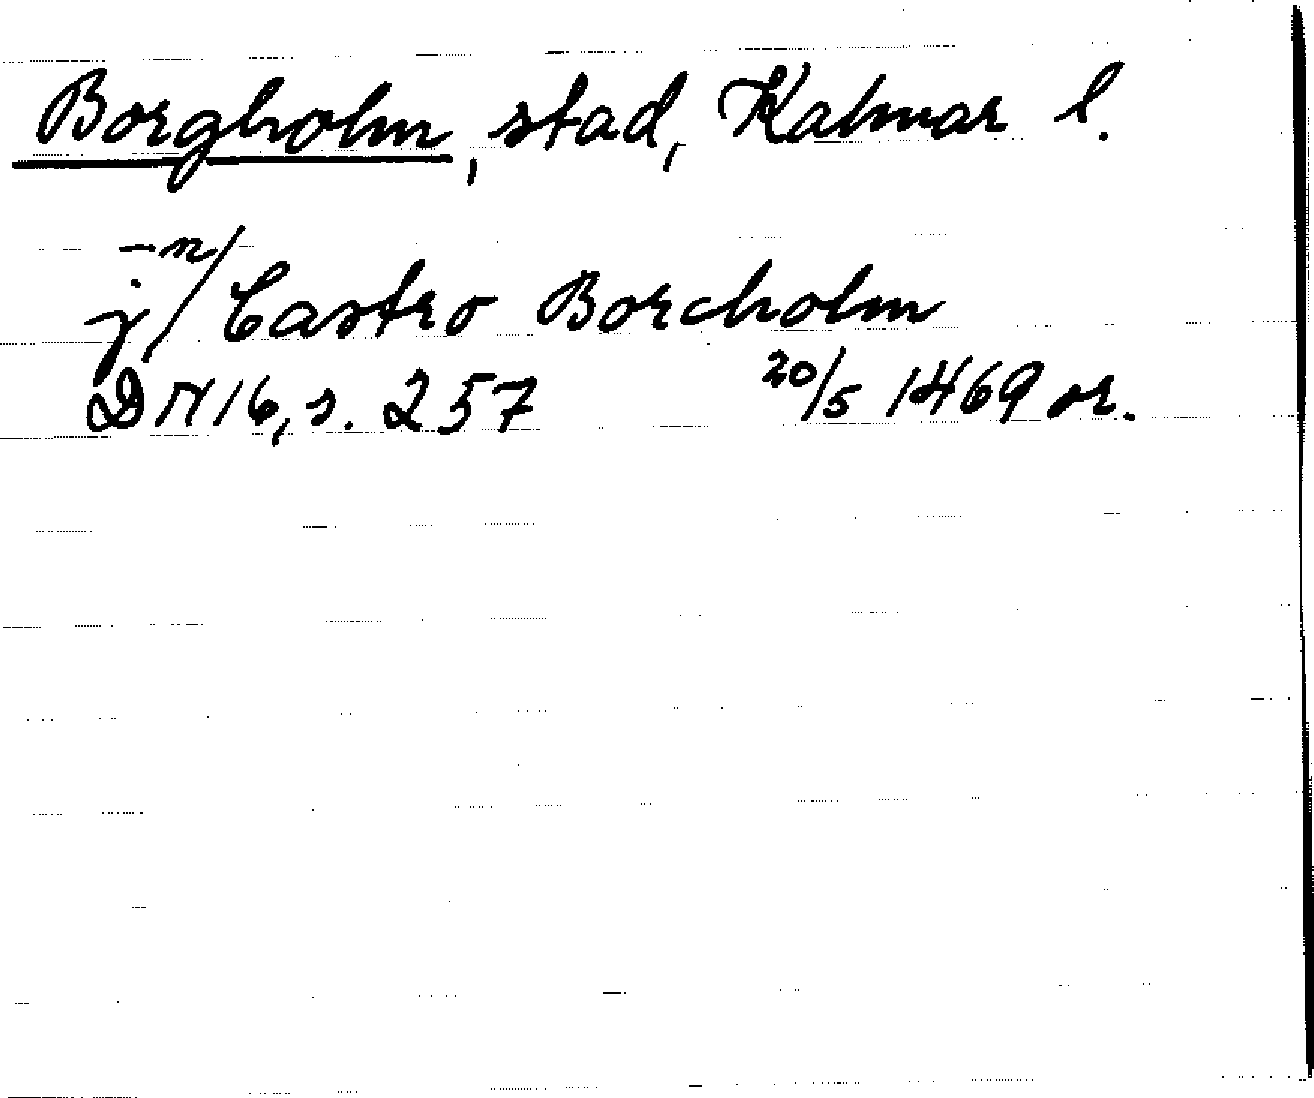 Borgholm, stad, Kalmar l.
j -n/ Castro Borcholm
DN 16, s. 257 20/5 1469 or.